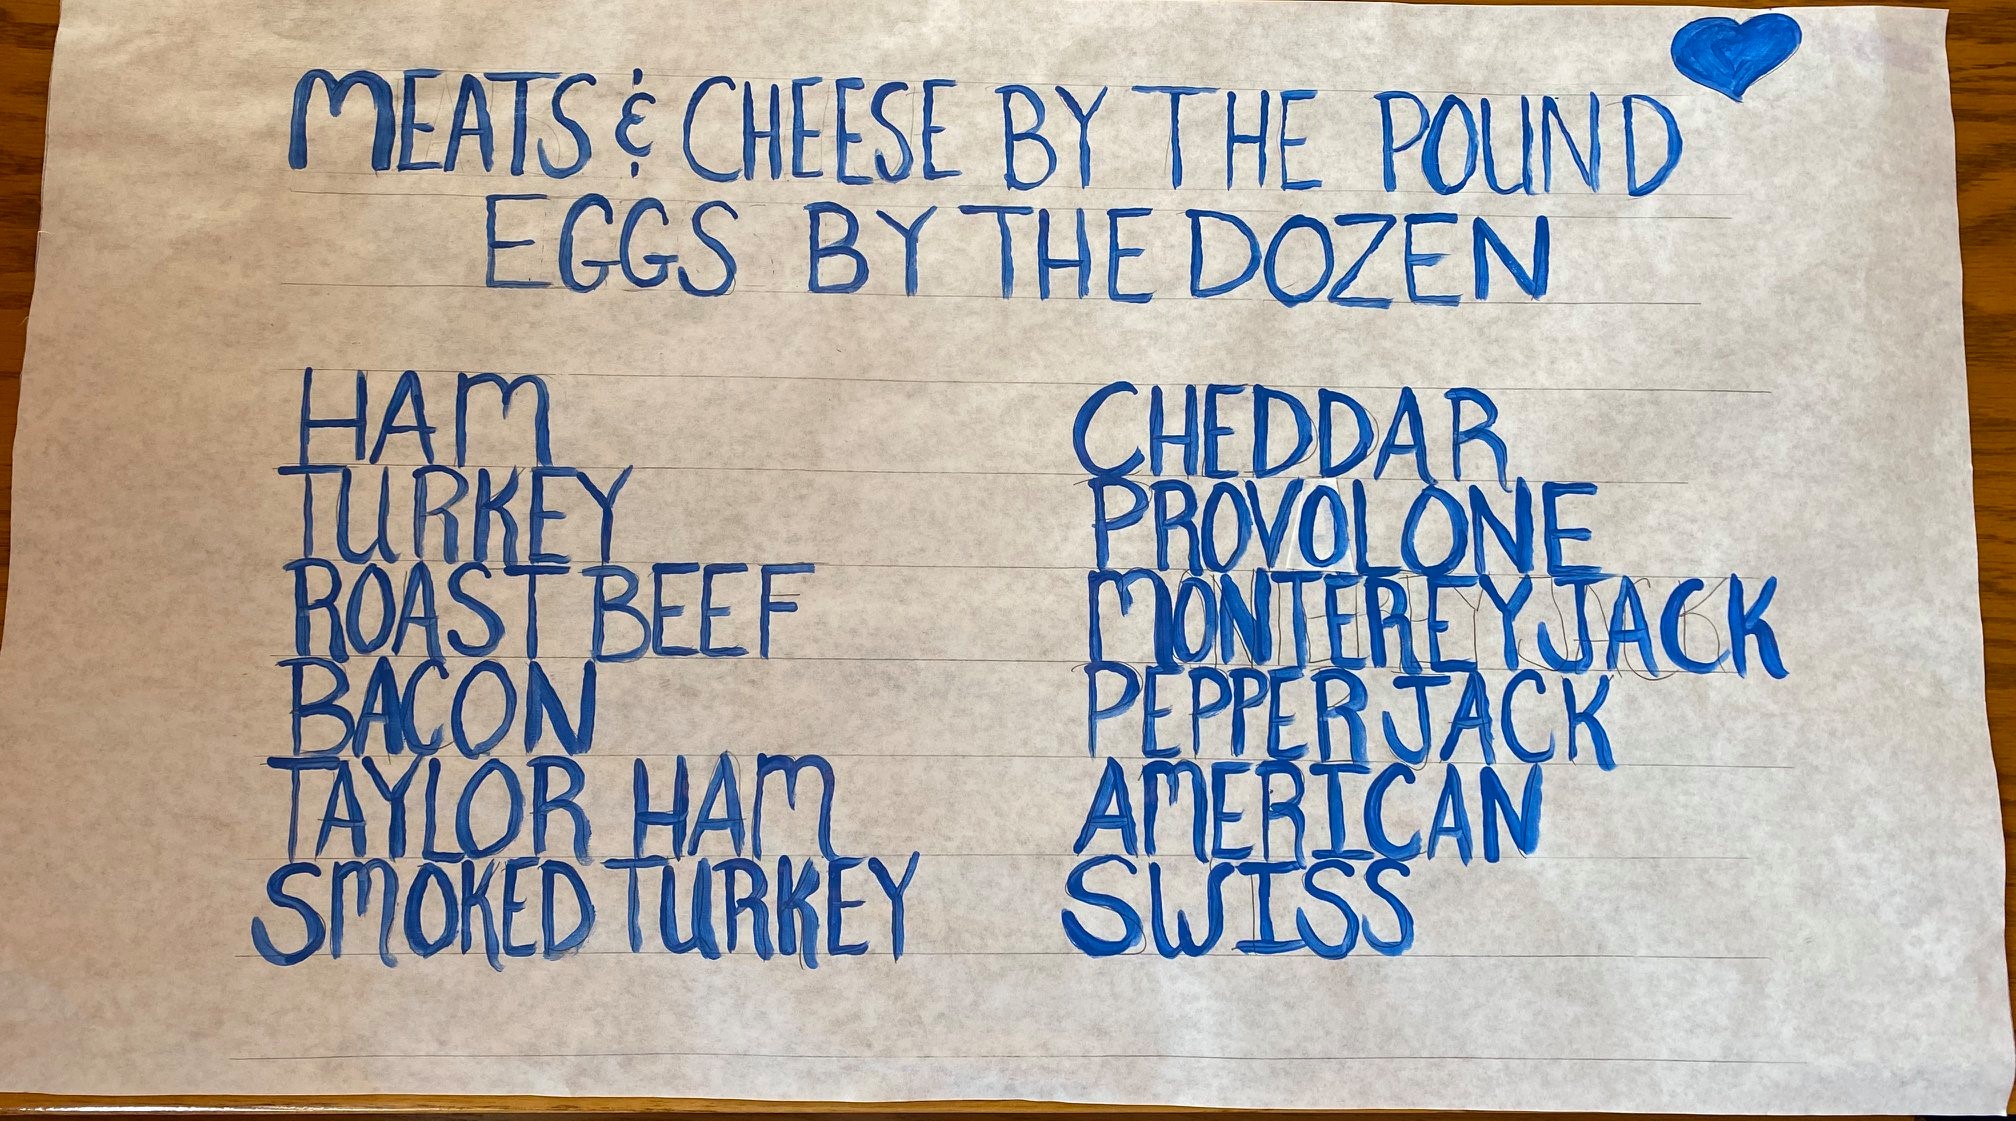 MEATS & CHEESE BY THE POUND
EGGS BY THE DOZEN
HAM
TURKEY
ROAST BEEF
BACON
TAYLOR HAM
SMOKED TURKEY
CHEDDAR
PROVOLONE
MONTEREY JACK
PEPPER JACK
AMERICAN
SWISS